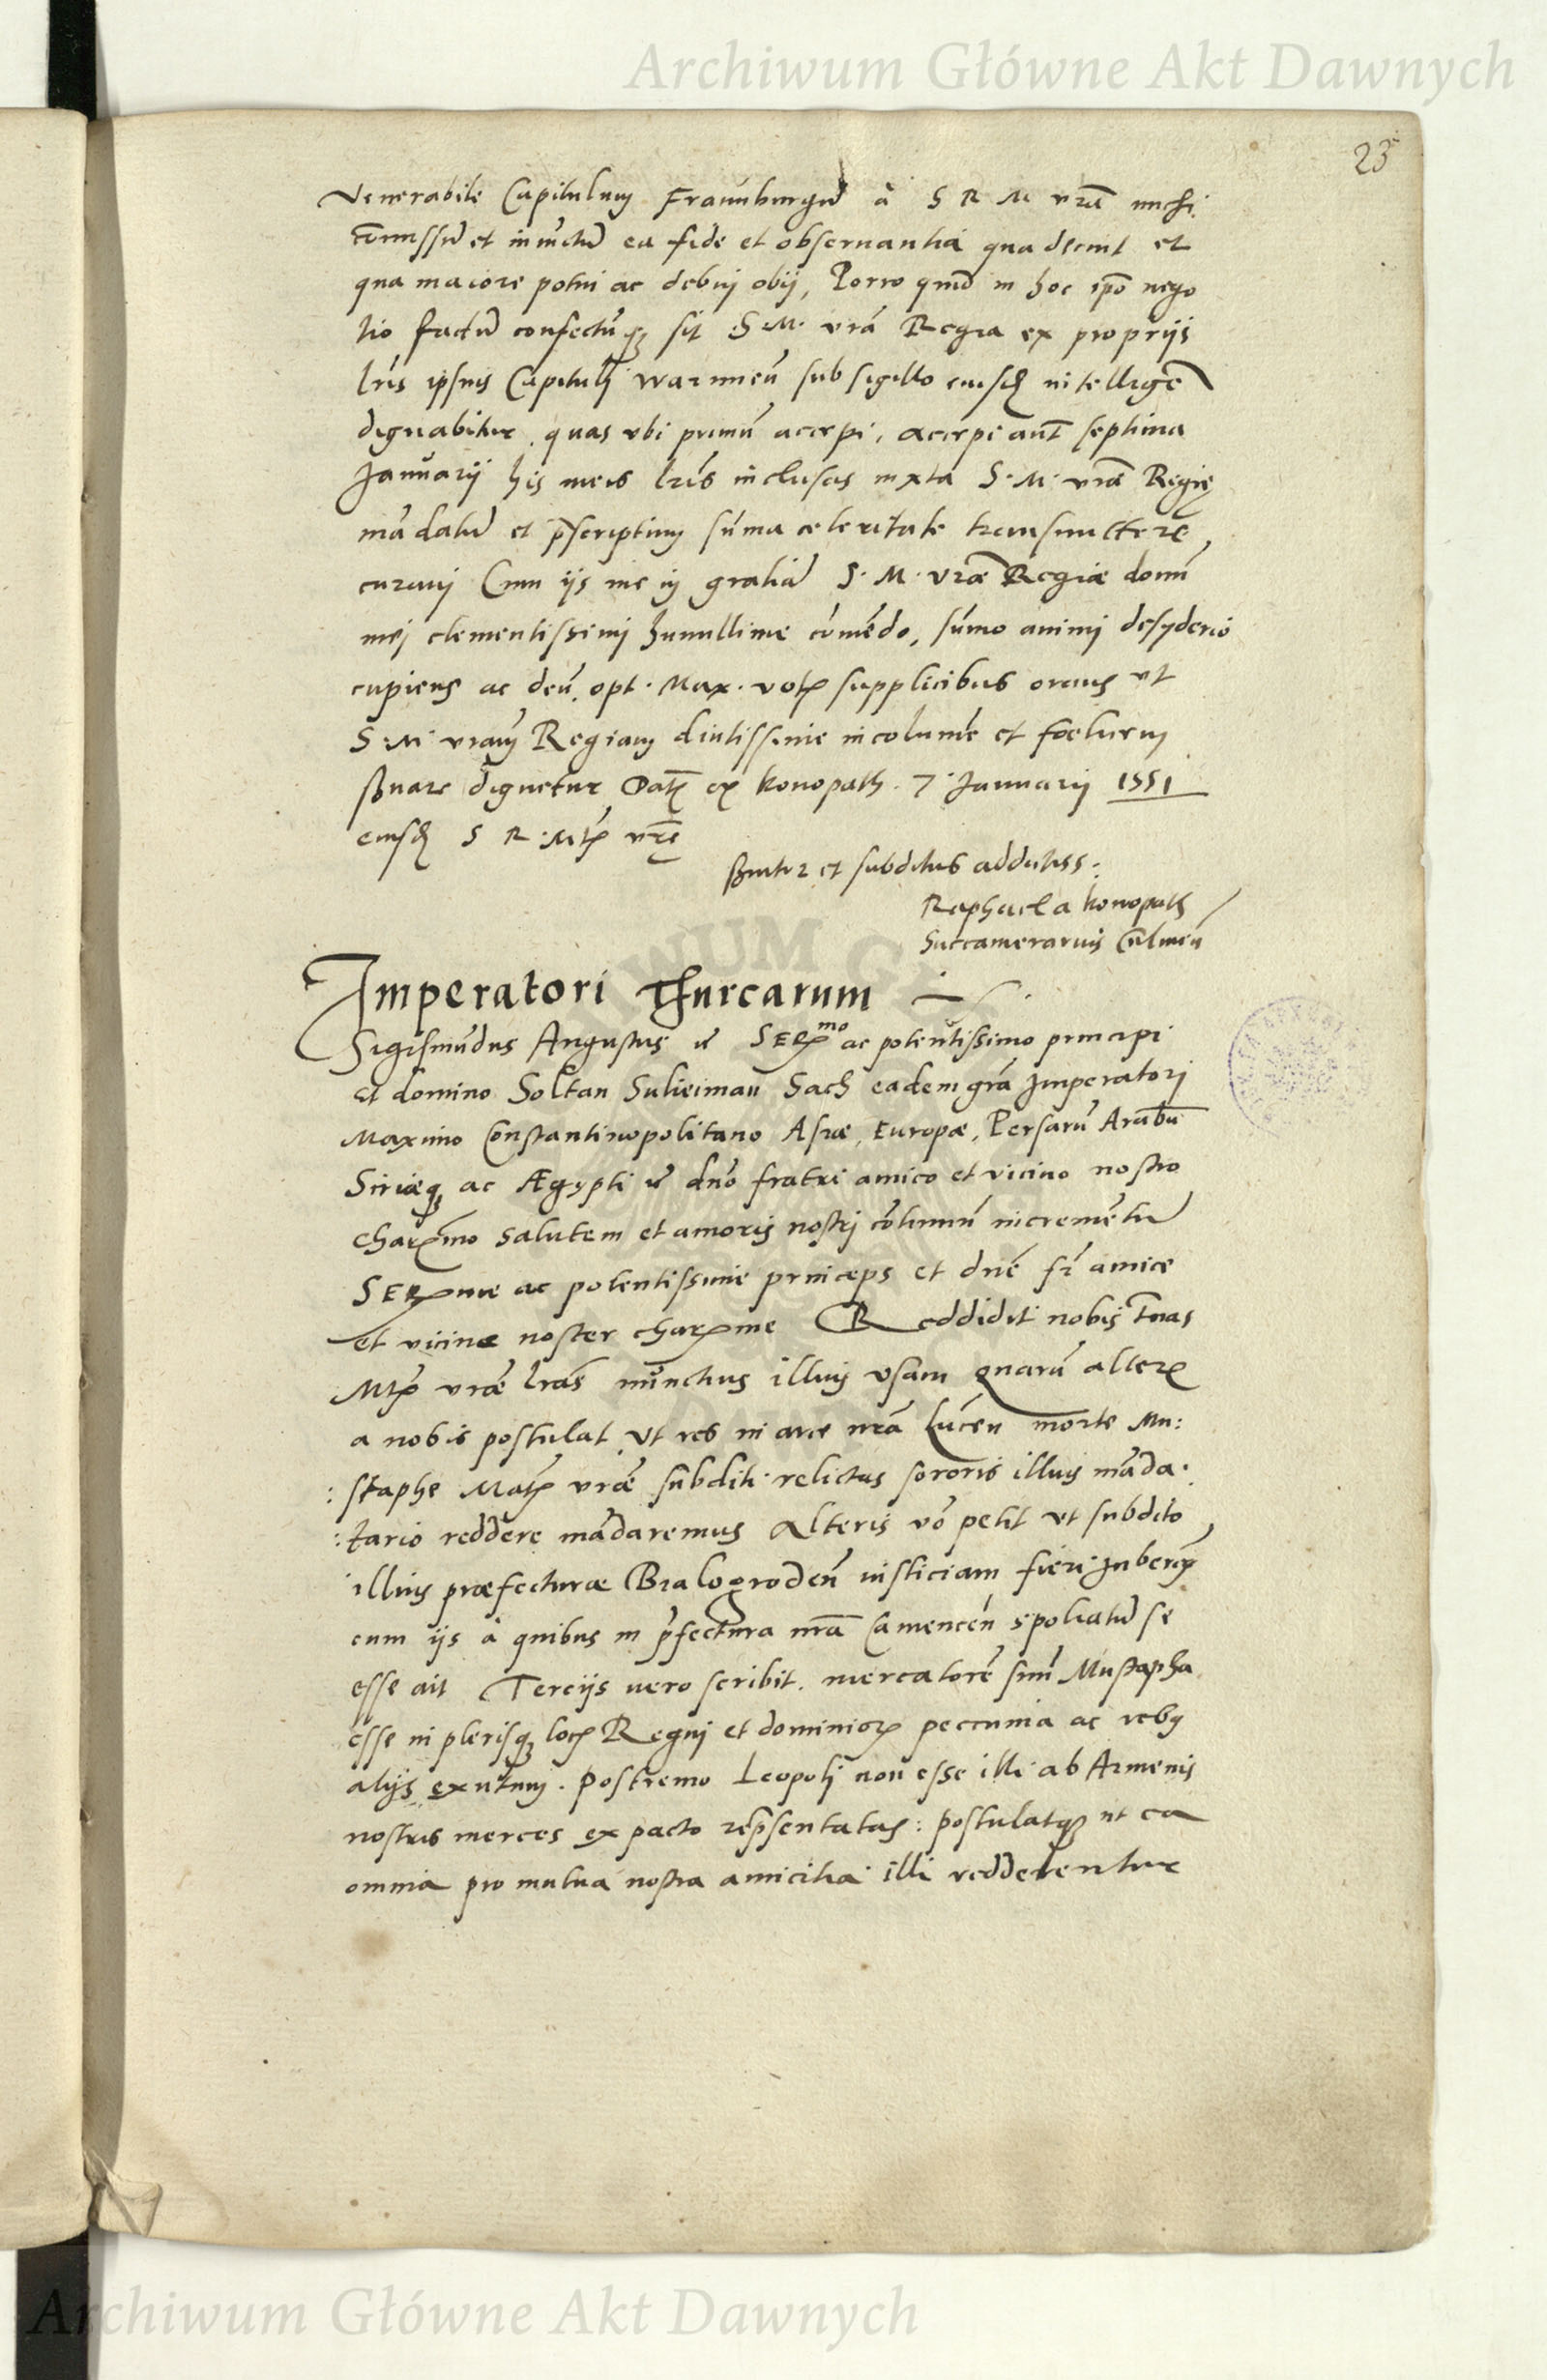 Archiwum Główne Akt Dawnych
25
Venerabile Capitulum Frauuburgen̄ à S R M vrā michi
cōmissū et iniūctū ea fide et obseruantia qua decuit et
qua maiore potui ac debuj obij, Porro quid in hoc ipō nego
tio factū confectūq; sit S. M. vrā Regia ex proprijs
lrīs ipsius Capitulj warmieñ sub sigillo eiusd intelligē
dignabitur. quas vbi primū accepi, accepi aūt septima
Januarij his meis lrīs inclusas iuxta S. M. vrāe Regię
mādatū et p̄scriptum sūma celeritate transmittere
curauj Cum ijs me in gratiā S. M. vrāe Regiæ domī
mej clementissimj humillime cōmēdo, sūmo animj desyderio
cupiens ac deū opt. Max. votis supplicibus orans vt
S. M. vram Regiam diutissime incolumē et foelicem
seruare dignetur Datū ex konopath. 7 Januarij 1551
eiusd S R Mtis vrę
seruitor et subditus addictiss:
Raphael a konopath
Succamerarius Culmeñ
Imperatori Thurcarum
Sigismūdus Augustus etc SERmo ac potentissimo principi
et domino Soltan Sulieiman Sach eadem grā Imperatorj
Maximo Constantinopolitano Asiæ, Europæ, Persarū Arabū
Siriæq; ac Ægypti etc dnō fratri amico et vicino nostro
charmo salutem et amoris nostrj cōtinuū incremētū
SERme ac potentissime princeps et dnē fr̄ amice
et vicine noster charme Reddidit nobis Tuas
Mtis vrāe lrās nūnctius illius vsam quarū alteris
a nobis postulat vt res in arce nrā Lūceñ morte Mu:
:staphe Matis vrāe subditi relictas sororis illius māda:
:tario reddere mādaremus Alteris vō petit vt subdito
illius præfecturæ Bialogrodeñ iusticiam fieri Juberem9
cum ijs à quibus in p̄fectura nrā Camenceñ spoliatū se
esse ait Tercijs vero scribit. mercatorē suū Mustapha
esse in plerisq; locis Regnj et dominiorū peccunia ac reb9
alijs exutum. Postremo Leopolj non esse illi ab Armenis
nostris merces ex pacto rep̄sentatas: postulatq; ut ea
omnia pro mutua nostra amicitia illi redderentur
Archiwum Główne Akt Dawnych